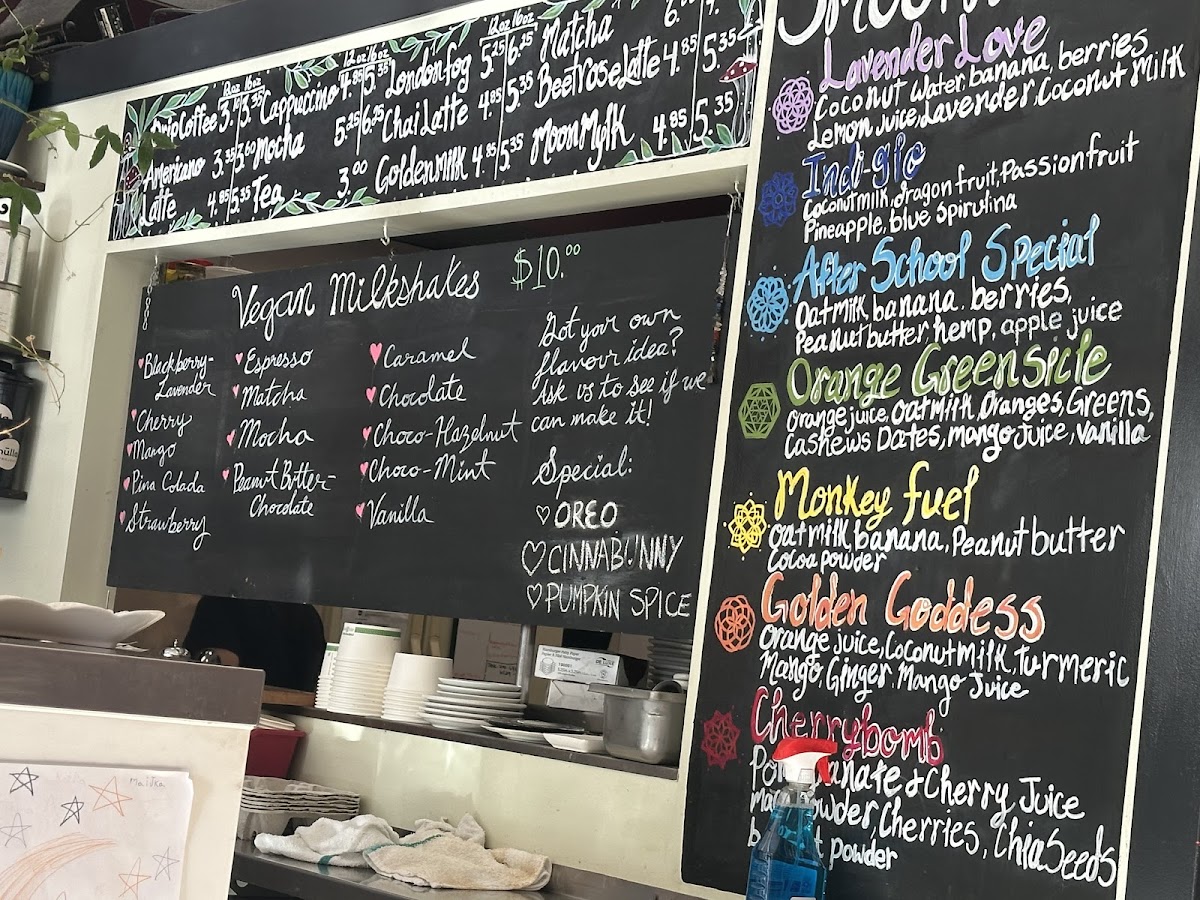 12oz 16oz
Drip Coffee 3.10 3.35
Americano 3.35 3.60
Latte 4.85 5.35
12oz 16oz
Cappuccino 4.85 5.35
Mocha 5.25 6.25
Tea 3.00
12oz 16oz
London fog 5.25 6.25
Chai Latte 4.85 5.35
Golden milk 4.85 5.35
Matcha
Beet rose Latte 4.85 5.35
Moon Mylk 4.85 5.35
Vegan Milkshakes $10.00
Blackberry-
Lavender
Cherry
Mango
Pina Colada
Strawberry
Espresso
Matcha
Mocha
Peanut Butter-
Chocolate
Caramel
Chocolate
Choco-Hazelnut
Choco-Mint
Vanilla
Got your own
flavour idea?
Ask us to see if we
can make it!
Special:
OREO
CINNABUNNY
PUMPKIN SPICE
Lavender Love
Coconut water, banana, berries
Lemon juice, Lavender, Coconut Milk
Indi-glo
Coconut milk, dragon fruit, Passionfruit
Pineapple, blue spirulina
After School Special
Oat milk, banana. berries,
Peanut butter, hemp, apple juice
Orange Greensicle
Orange juice, Oat milk, Oranges, Greens,
Cashews Dates, mango juice, vanilla
Monkey fuel
Oat milk, banana, Peanut butter
Cocoa powder
Golden Goddess
Orange juice, Coconut milk, turmeric
Mango, Ginger. Mango Juice
Cherrybomb
& Cherry Juice
Cherries, Chia Seeds
powder